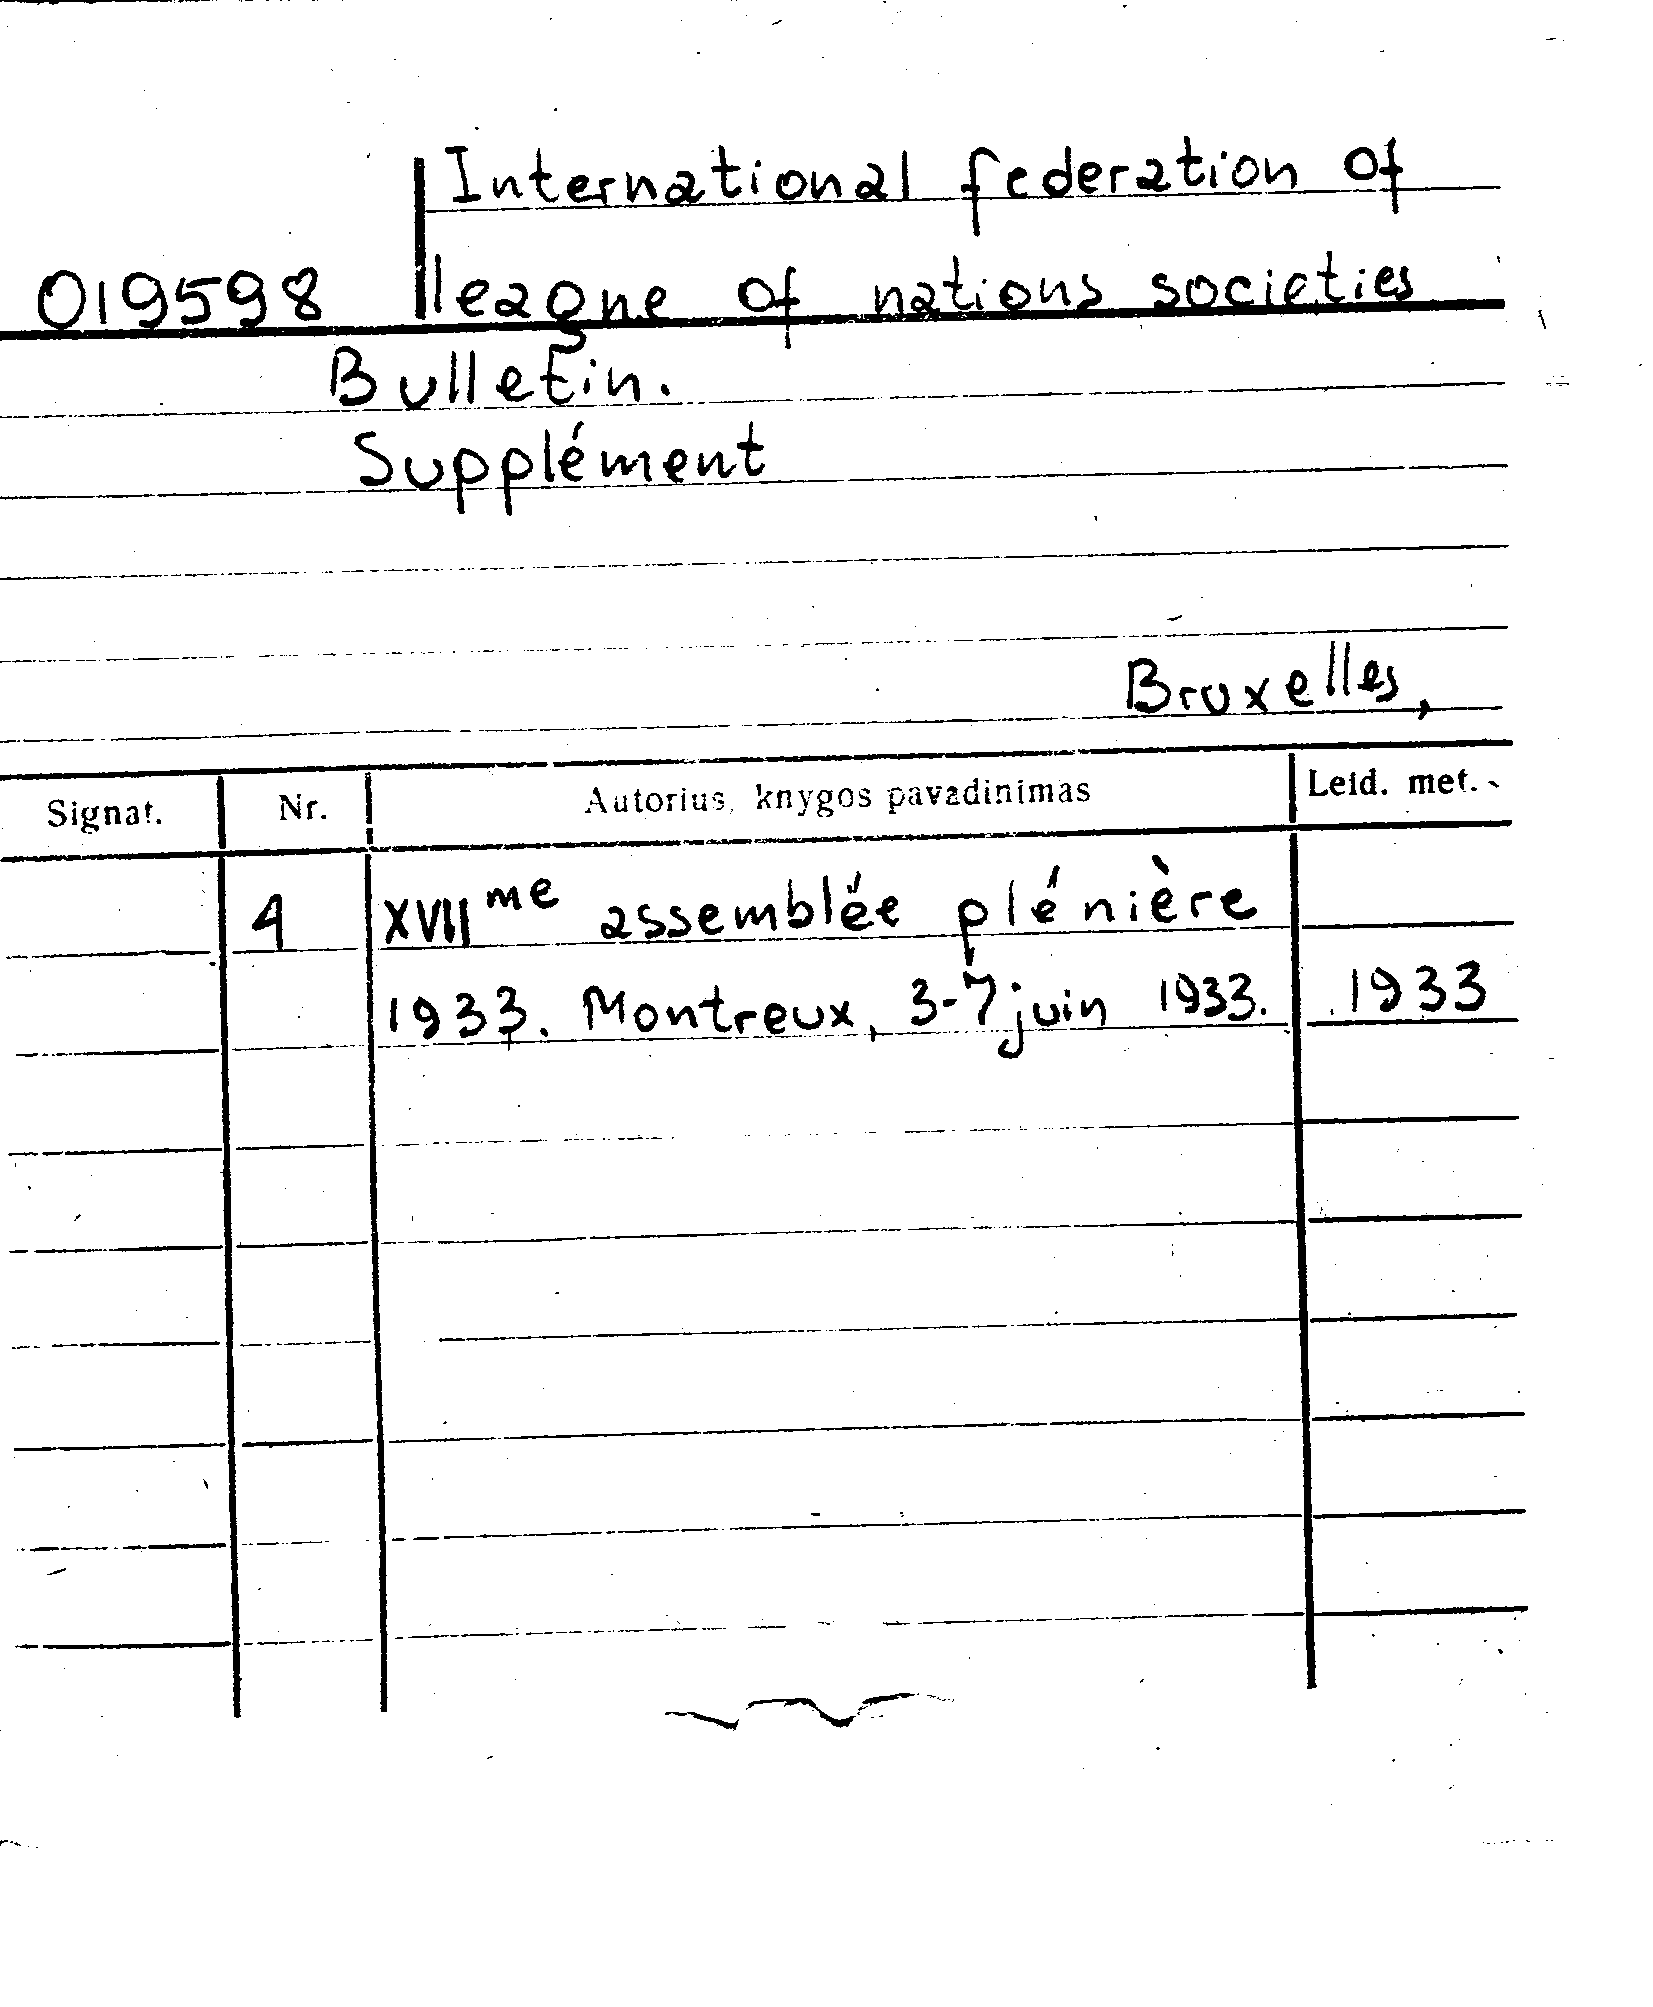 International federation of
019598 league of nations societies
Bulletin.
Supplément
Bruxelles,
Signat. Nr. Autorius, knygos pavadinimas Leid. met.
4 XVIIme assemblée plénière
1933. Montreux, 3-7 juin 1933. 1933